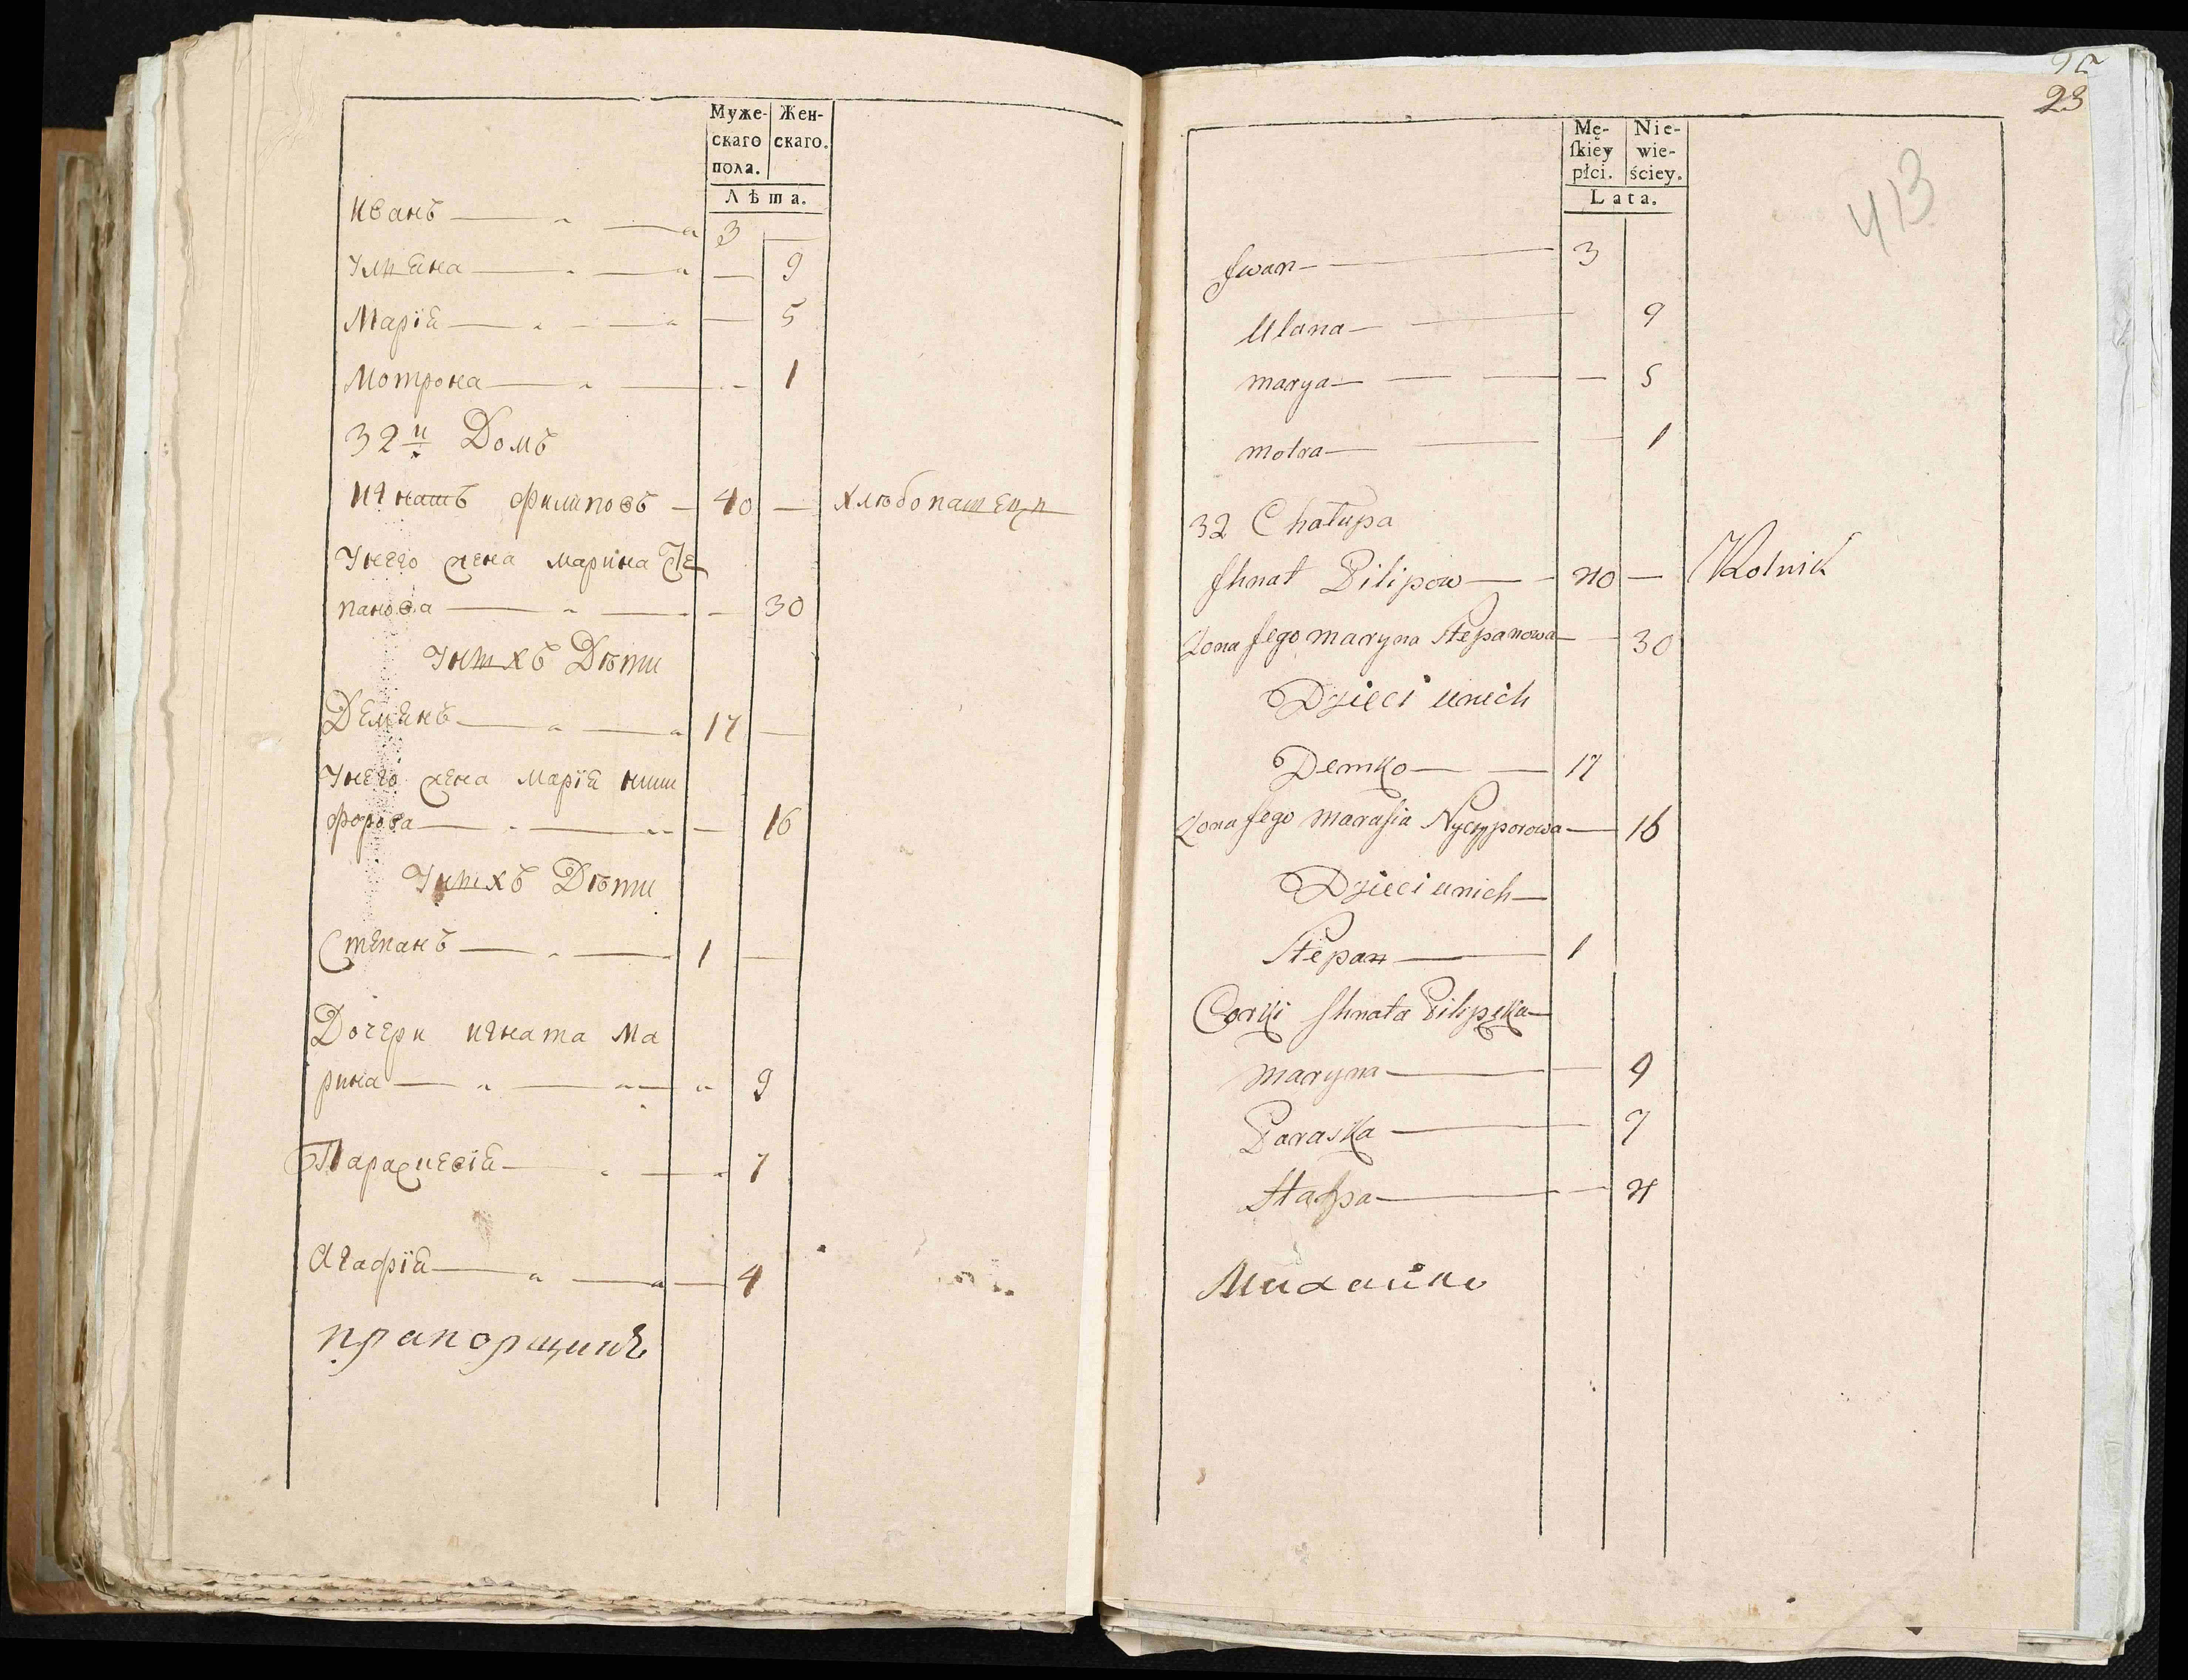 Муже-
скаго
пола.
Жен-
скаго.
Лѣта.
Иванъ 3
Улияна 9
Марія 5
Мотрона 1
32й Домъ
Игнатъ Филиповъ 40 хлѣбопашецъ
Унего жена Марина Сте
панова 30
Унихъ Дѣти
Демянъ 17
Унего жена Марія ники
форова 16
Унихъ Дѣти
Степанъ 1
Дочери игната Ма
рина 9
Параскевія 7
Агафія 4
прапорщикъ
23
413
Mę-
ſkiey
płci.
Nie-
wie-
ściey.
Lata.
Iwan 3
Ulana 9
marya 5
motra 1
32 Chałupa
Ihnat Pilipow 40 Rolnik
Zona Jego maryna Stepanowa 30
Dzieci unich
Demko 17
Zona Jego marasia Nyczyporowa 16
Dzieci unich
Stepan 1
Corki Ihnata Pilipęka
maryna 9
Paraska 7
Hapa 4
Михайло